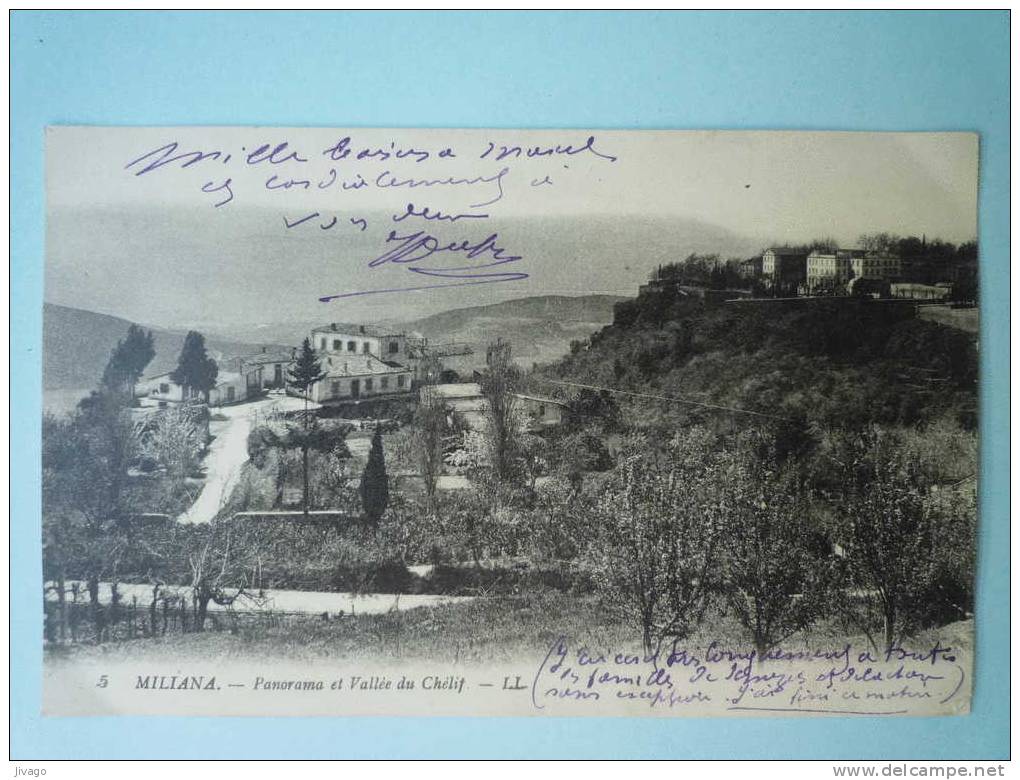 Mille baisers a Marcel
et cordialement à
vous deux
5 MILIANA. — Panorama et Vallée du Chélif — LL
(J'ai écrit très longuement a toutes
les familles de et
sans exception. J'ai fini ce matin.)
jivago
www.delcampe.net